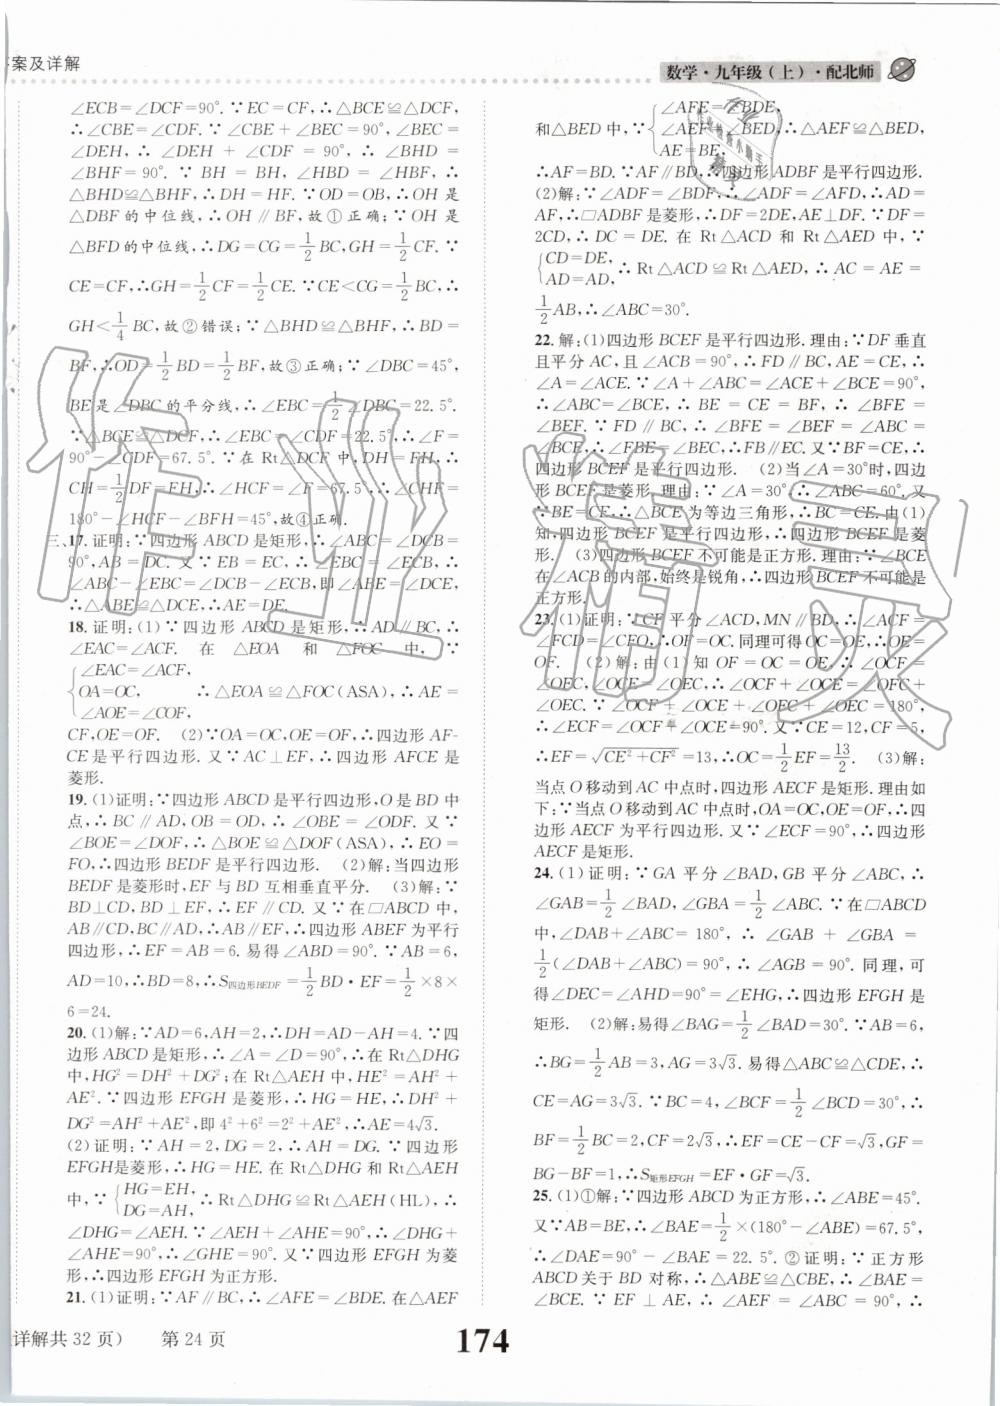 答案及详解
数学·九年级(上)·配北师
∠ECB=∠DCF=90°.∵EC=CF,∴△BCE≌△DCF,
∴∠CBE=∠CDF.∵∠CBE+∠BEC=90°,∠BEC=
∠DEH,∴∠DEH+∠CDF=90°,∴∠BHD=
∠BHF=90°.∵BH=BH,∠HBD=∠HBF,∴
△BHD≌△BHF,∴DH=HF.∵OD=OB,∴OH是
△DBF的中位线,∴OH∥BF,故①正确;∵OH是
△BFD的中位线,∴DG=CG=1/2BC,GH=1/2CF.∵
CE=CF,∴GH=1/2CF=1/2CE.∵CE<CG=1/2BC,∴
GH<1/4BC,故②错误;∵△BHD≌△BHF,∴BD=
BF,∴OD=1/2BD=1/2BF,故③正确;∵∠DBC=45°,
BE是∠DBC的平分线,∴∠EBC=1/2∠DBC=22.5°.
∵△BCE≌△DCF,∴∠EBC=∠CDF=22.5°,∴∠F=
90°-∠CDF=67.5°.∵在Rt△DCF中,DH=FH,∴
CH=1/2DF=FH,∴∠HCF=∠F=67.5°,∴∠CHF=
180°-∠HCF-∠BFH=45°,故④正确.
三、17.证明:∵四边形ABCD是矩形,∴∠ABC=∠DCB=
90°,AB=DC.又∵EB=EC,∴∠EBC=∠ECB,∴
∠ABC-∠EBC=∠DCB-∠ECB,即∠ABE=∠DCE,
∴△ABE≌△DCE,∴AE=DE.
18.证明:(1)∵四边形ABCD是矩形,∴AD∥BC,∴
∠EAC=∠ACF.在△EOA和△FOC中,∵
{∠EAC=∠ACF,
OA=OC,
∠AOE=∠COF,
∴△EOA≌△FOC(ASA),∴AE=
CF,OE=OF. (2)∵OA=OC,OE=OF,∴四边形AF-
CE是平行四边形.又∵AC⊥EF,∴四边形AFCE是
菱形.
19.(1)证明:∵四边形ABCD是平行四边形,O是BD中
点,∴BC∥AD,OB=OD,∴∠OBE=∠ODF.又∵
∠BOE=∠DOF,∴△BOE≌△DOF(ASA),∴EO=
FO,∴四边形BEDF是平行四边形. (2)解:当四边形
BEDF是菱形时,EF与BD互相垂直平分. (3)解:∵
BD⊥CD,BD⊥EF,∴EF∥CD.又∵在▱ABCD中,
AB∥CD,BC∥AD,∴AB∥EF,∴四边形ABEF为平行
四边形,∴EF=AB=6.易得∠ABD=90°.∵AB=6,
AD=10,∴BD=8,∴S四边形BEDF=1/2BD·EF=1/2×8×
6=24.
20.(1)解:∵AD=6,AH=2,∴DH=AD-AH=4.∵四
边形ABCD是矩形,∴∠A=∠D=90°,∴在Rt△DHG
中,HG²=DH²+DG²;在Rt△AEH中,HE²=AH²+
AE².∵四边形EFGH是菱形,∴HG=HE,∴DH²+
DG²=AH²+AE²,即4²+6²=2²+AE²,∴AE=4√3.
(2)证明:∵AH=2,DG=2,∴AH=DG.∵四边形
EFGH是菱形,∴HG=HE.在Rt△DHG和Rt△AEH
中,∵{HG=EH,
DG=AH,
∴Rt△DHG≌Rt△AEH(HL),∴
∠DHG=∠AEH.∵∠AEH+∠AHE=90°,∴∠DHG+
∠AHE=90°,∴∠GHE=90°.又∵四边形EFGH为菱
形,∴四边形EFGH为正方形.
21.(1)证明:∵AF∥BC,∴∠AFE=∠BDE.在△AEF
和△BED中,∵{∠AFE=∠BDE,
∠AEF=∠BED,
AE=BE,
∴△AEF≌△BED,
∴AF=BD.∵AF∥BD,∴四边形ADBF是平行四边形.
(2)解:∵∠ADF=∠BDF,∴∠ADF=∠AFD,∴AD=
AF,∴▱ADBF是菱形,∴DF=2DE,AE⊥DF.∵DF=
2CD,∴DC=DE.在Rt△ACD和Rt△AED中,∵
{CD=DE,
AD=AD,
∴Rt△ACD≌Rt△AED,∴AC=AE=
1/2AB,∴∠ABC=30°.
22.解:(1)四边形BCEF是平行四边形.理由:∵DF垂直
且平分AC,且∠ACB=90°,∴FD∥BC,AE=CE,∴
∠A=∠ACE.∵∠A+∠ABC=∠ACE+∠BCE=90°,
∴∠ABC=∠BCE,∴BE=CE=BF,∴∠BFE=
∠BEF.∵FD∥BC,∴∠BFE=∠BEF=∠ABC=
∠BCE,∴∠BEC=∠EBF,∴FB∥EC.又∵BF=CE,∴
四边形BCEF是平行四边形. (2)当∠A=30°时,四边
形BCEF是菱形.理由:∵∠A=30°,∴∠ABC=60°.又
∵BE=CE,∴△BCE为等边三角形,∴BC=CE.由(1)
知,四边形BCEF是平行四边形,∴四边形BCEF是菱
形. (3)四边形BCEF不可能是正方形.理由:∵∠BCE
在∠ACB的内部,始终是锐角,∴四边形BCEF不可能是
正方形.
23.(1)证明:∵CF平分∠ACD,MN∥BD,∴∠ACF=
∠FCD=∠CFO,∴OF=OC.同理可得OC=OE,∴OE=
OF. (2)解:由(1)知OF=OC=OE,∴∠OCF=
∠OFC,∠OCE=∠OEC,∴∠OCF+∠OCE=∠OFC+
∠OEC.∵∠OCF+∠OCE+∠OFC+∠OEC=180°,
∴∠ECF=∠OCF+∠OCE=90°.又∵CE=12,CF=5,
∴EF=√CE²+CF²=13,∴OC=1/2EF=13/2. (3)解:
当点O移动到AC中点时,四边形AECF是矩形.理由如
下:∵当点O移动到AC中点时,OA=OC,OE=OF,∴四
边形AECF为平行四边形.又∵∠ECF=90°,∴四边形
AECF是矩形.
24.(1)证明:∵GA平分∠BAD,GB平分∠ABC,∴
∠GAB=1/2∠BAD,∠GBA=1/2∠ABC.∵在▱ABCD
中,∠DAB+∠ABC=180°,∴∠GAB+∠GBA=
1/2(∠DAB+∠ABC)=90°,∴∠AGB=90°.同理,可
得∠DEC=∠AHD=90°=∠EHG,∴四边形EFGH是
矩形. (2)解:易得∠BAG=1/2∠BAD=30°.∵AB=6,
∴BG=1/2AB=3,AG=3√3.易得△ABG≌△CDE,∴
CE=AG=3√3.∵BC=4,∠BCF=1/2∠BCD=30°,∴
BF=1/2BC=2,CF=2√3,∴EF=CE-CF=√3,GF=
BG-BF=1,∴S矩形EFGH=EF·GF=√3.
25.(1)①解:∵四边形ABCD为正方形,∴∠ABE=45°.
又∵AB=BE,∴∠BAE=1/2×(180°-∠ABE)=67.5°,
∴∠DAE=90°-∠BAE=22.5°. ②证明:∵正方形
ABCD关于BD对称,∴△ABE≌△CBE,∴∠BAE=
∠BCE.∵EF⊥AE,∴∠AEF=∠ABC=90°,∴
详解共32页) 第24页
174
作业精灵